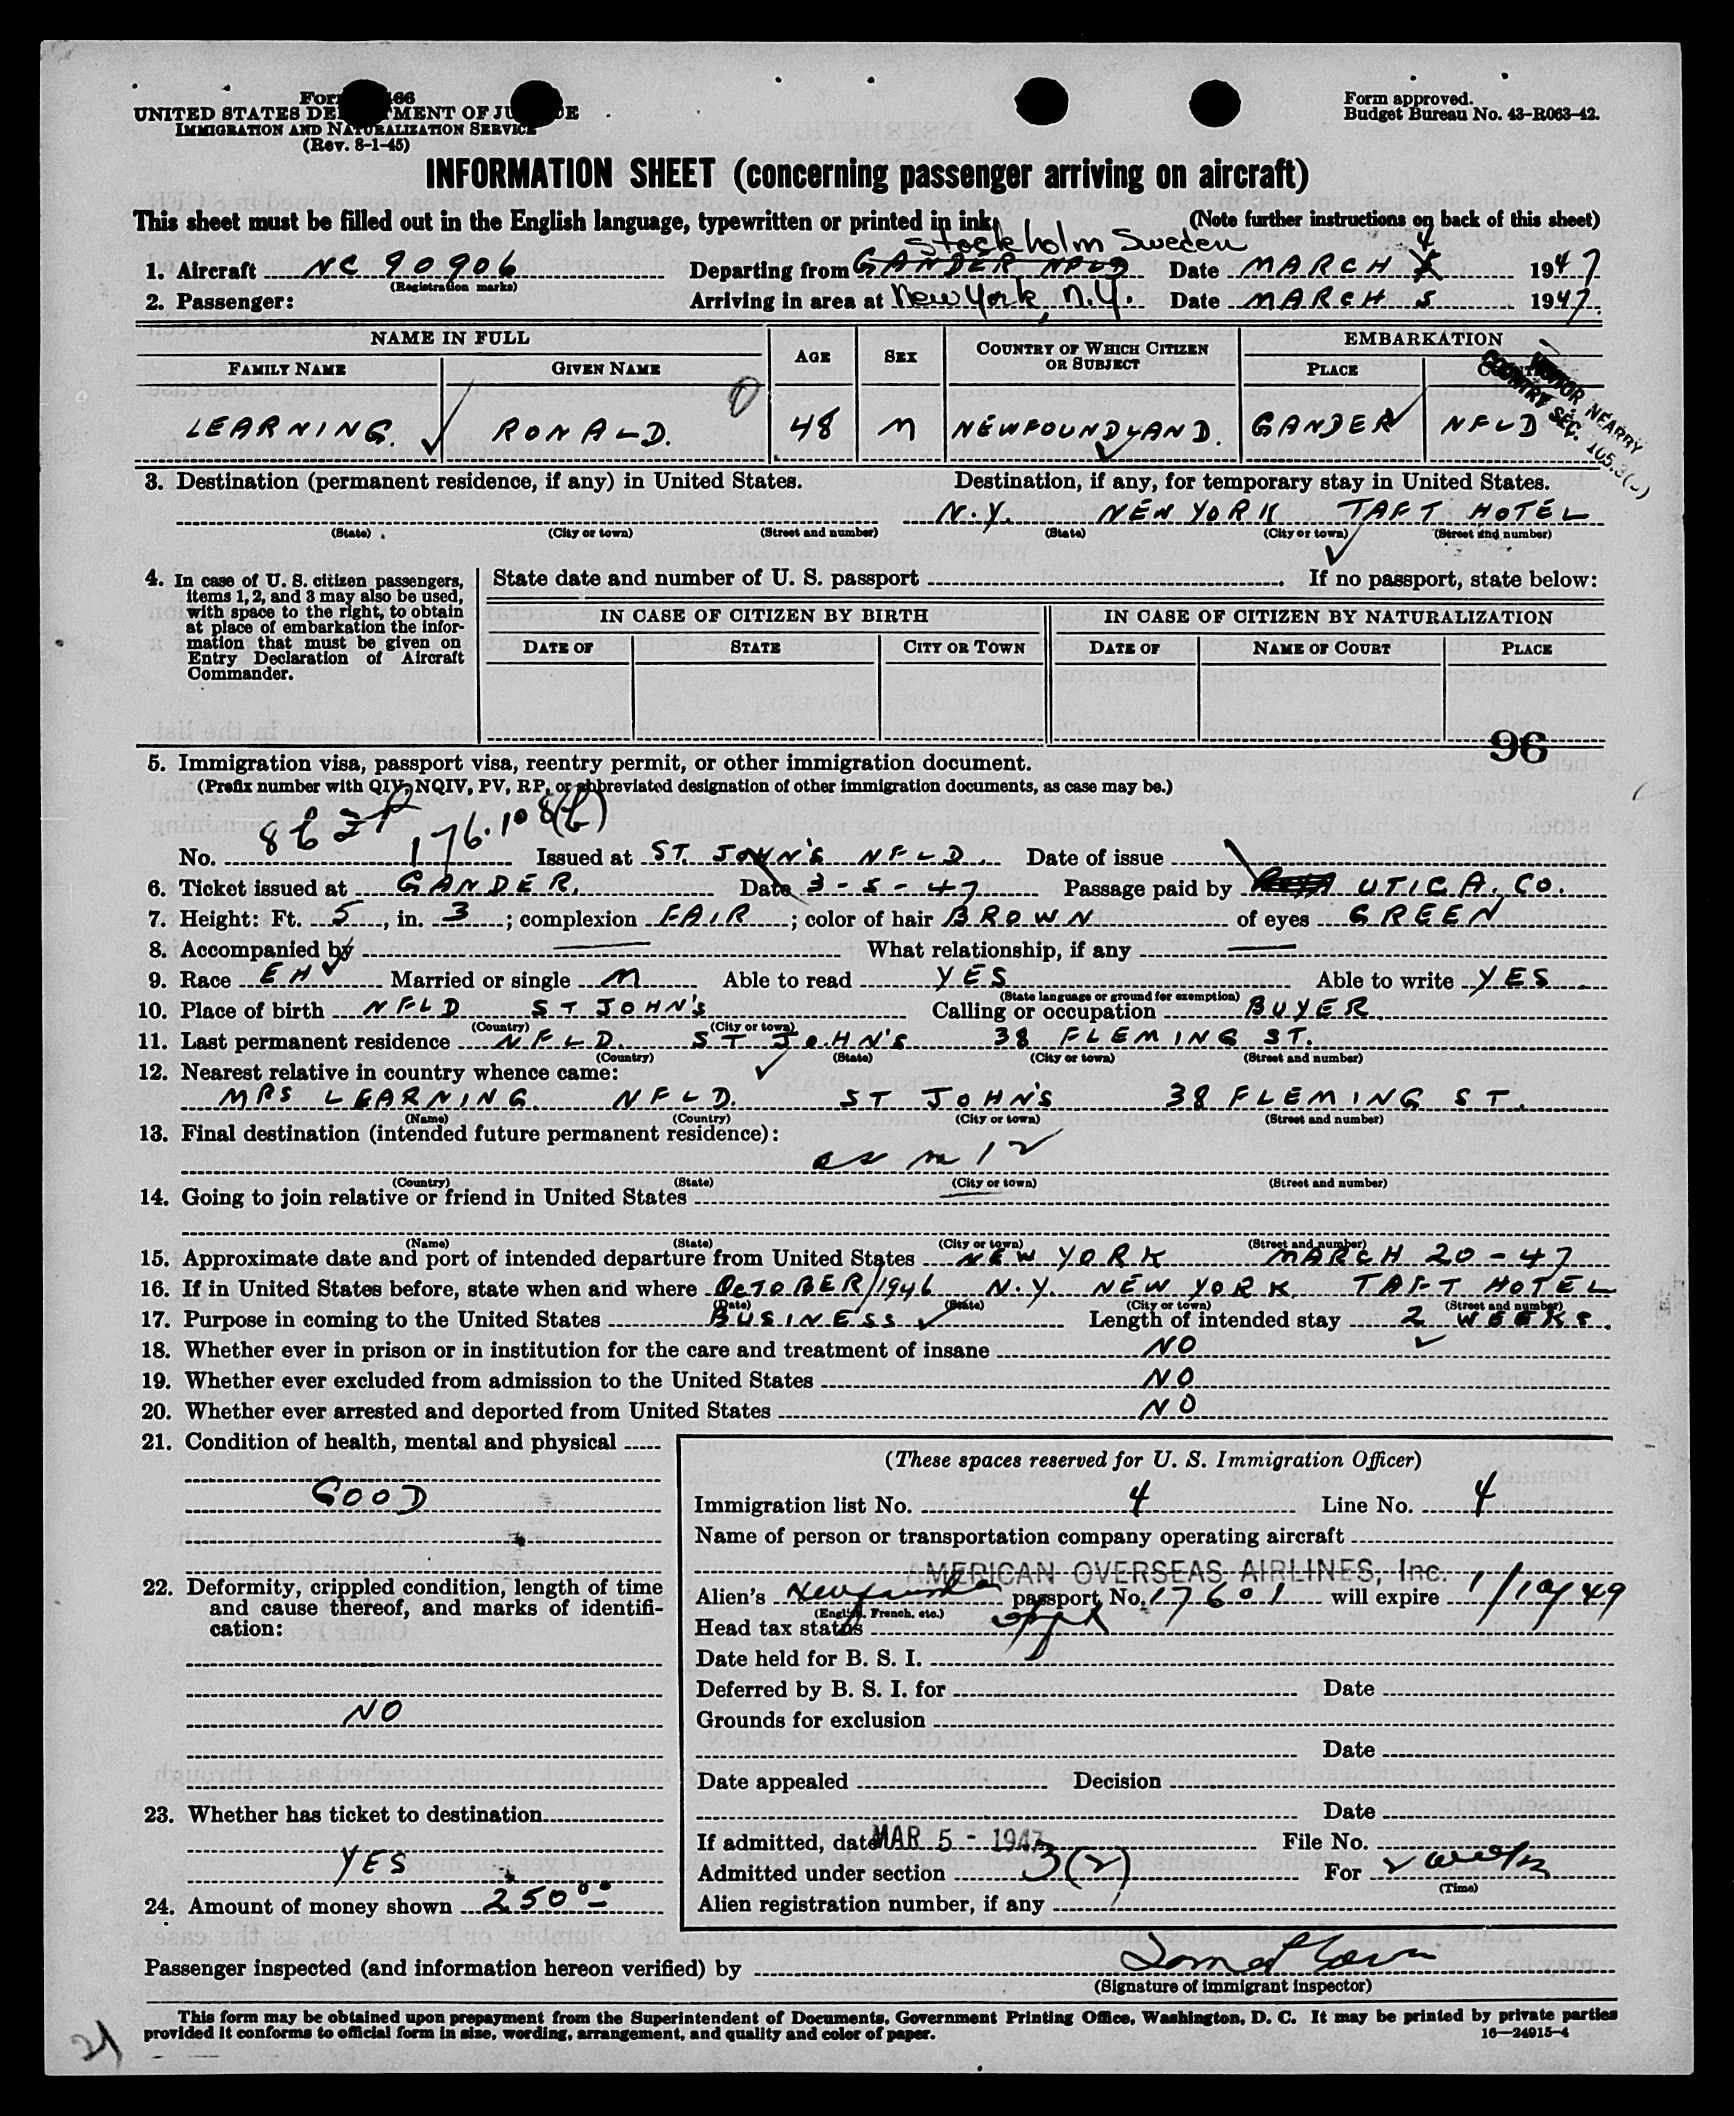 Form 466
UNITED STATES DEPARTMENT OF JUSTICE
IMMIGRATION AND NATURALIZATION SERVICE
(Rev. 8-1-45)
Form approved.
Budget Bureau No. 43-R063-42.
INFORMATION SHEET (concerning passenger arriving on aircraft)
This sheet must be filled out in the English language, typewritten or printed in ink.
(Note further instructions on back of this sheet)
Stockholm Sweden
1. Aircraft NC 90906 Departing from GANDER NFLD Date MARCH 4 1947
(Registration marks)
2. Passenger: Arriving in area at New York, N.Y. Date MARCH 5 1947.
NAME IN FULL AGE SEX COUNTRY OF WHICH CITIZEN OR SUBJECT EMBARKATION
FAMILY NAME GIVEN NAME PLACE
LEARNING. RONALD. 48 M NEWFOUNDLAND. GANDER NFLD
NEARBY COUNTRY SEC.
3. Destination (permanent residence, if any) in United States. Destination, if any, for temporary stay in United States.
N.Y. NEW YORK TAFT HOTEL
(State) (City or town) (Street and number) (State) (City or town) (Street and number)
4. In case of U. S. citizen passengers, items 1, 2, and 3 may also be used, with space to the right, to obtain at place of embarkation the information that must be given on Entry Declaration of Aircraft Commander.
State date and number of U. S. passport . If no passport, state below:
IN CASE OF CITIZEN BY BIRTH IN CASE OF CITIZEN BY NATURALIZATION
DATE OF STATE CITY OR TOWN DATE OF NAME OF COURT PLACE
96
5. Immigration visa, passport visa, reentry permit, or other immigration document.
(Prefix number with QIV, NQIV, PV, RP, or abbreviated designation of other immigration documents, as case may be.)
176.108(b)
No. Issued at ST. JOHN'S NFLD. Date of issue
6. Ticket issued at GANDER. Date 3-5-47 Passage paid by UTICA. CO.
7. Height: Ft. 5, in. 3; complexion FAIR; color of hair BROWN of eyes GREEN
8. Accompanied by What relationship, if any
9. Race EH Married or single M Able to read YES Able to write YES
(State language or ground for exemption)
10. Place of birth NFLD ST JOHN'S Calling or occupation BUYER.
(Country) (City or town)
11. Last permanent residence NFLD. ST JOHN'S 38 FLEMING ST.
(Country) (State) (City or town) (Street and number)
12. Nearest relative in country whence came:
MRS LEARNING. NFLD. ST JOHN'S 38 FLEMING ST.
(Name) (Country) (City or town) (Street and number)
13. Final destination (intended future permanent residence):
as in 12
(Country) (State) (City or town) (Street and number)
14. Going to join relative or friend in United States
(Name) (State) (City or town) (Street and number)
15. Approximate date and port of intended departure from United States NEW YORK MARCH 20-47
16. If in United States before, state when and where OCTOBER/1946 N.Y. NEW YORK. TAFT HOTEL
(Date) (State) (City or town) (Street and number)
17. Purpose in coming to the United States BUSINESS Length of intended stay 2 WEEKS.
18. Whether ever in prison or in institution for the care and treatment of insane NO
19. Whether ever excluded from admission to the United States NO
20. Whether ever arrested and deported from United States NO
21. Condition of health, mental and physical
GOOD
22. Deformity, crippled condition, length of time and cause thereof, and marks of identification:
NO
23. Whether has ticket to destination
YES
24. Amount of money shown 250.00
(These spaces reserved for U. S. Immigration Officer)
Immigration list No. 4 Line No. 4
Name of person or transportation company operating aircraft
AMERICAN OVERSEAS AIRLINES, Inc.
Alien's passport No. 17601 will expire 1/10/49
(English, French, etc.)
Head tax status
Date held for B. S. I.
Deferred by B. S. I. for Date
Grounds for exclusion
Date
Date appealed Decision
Date
If admitted, date MAR 5 - 1947 File No.
Admitted under section 3(2) For 2 weeks
(Time)
Alien registration number, if any
Passenger inspected (and information hereon verified) by
(Signature of immigrant inspector)
This form may be obtained upon prepayment from the Superintendent of Documents, Government Printing Office, Washington, D. C. It may be printed by private parties
provided it conforms to official form in size, wording, arrangement, and quality and color of paper.
16—24915-4
21